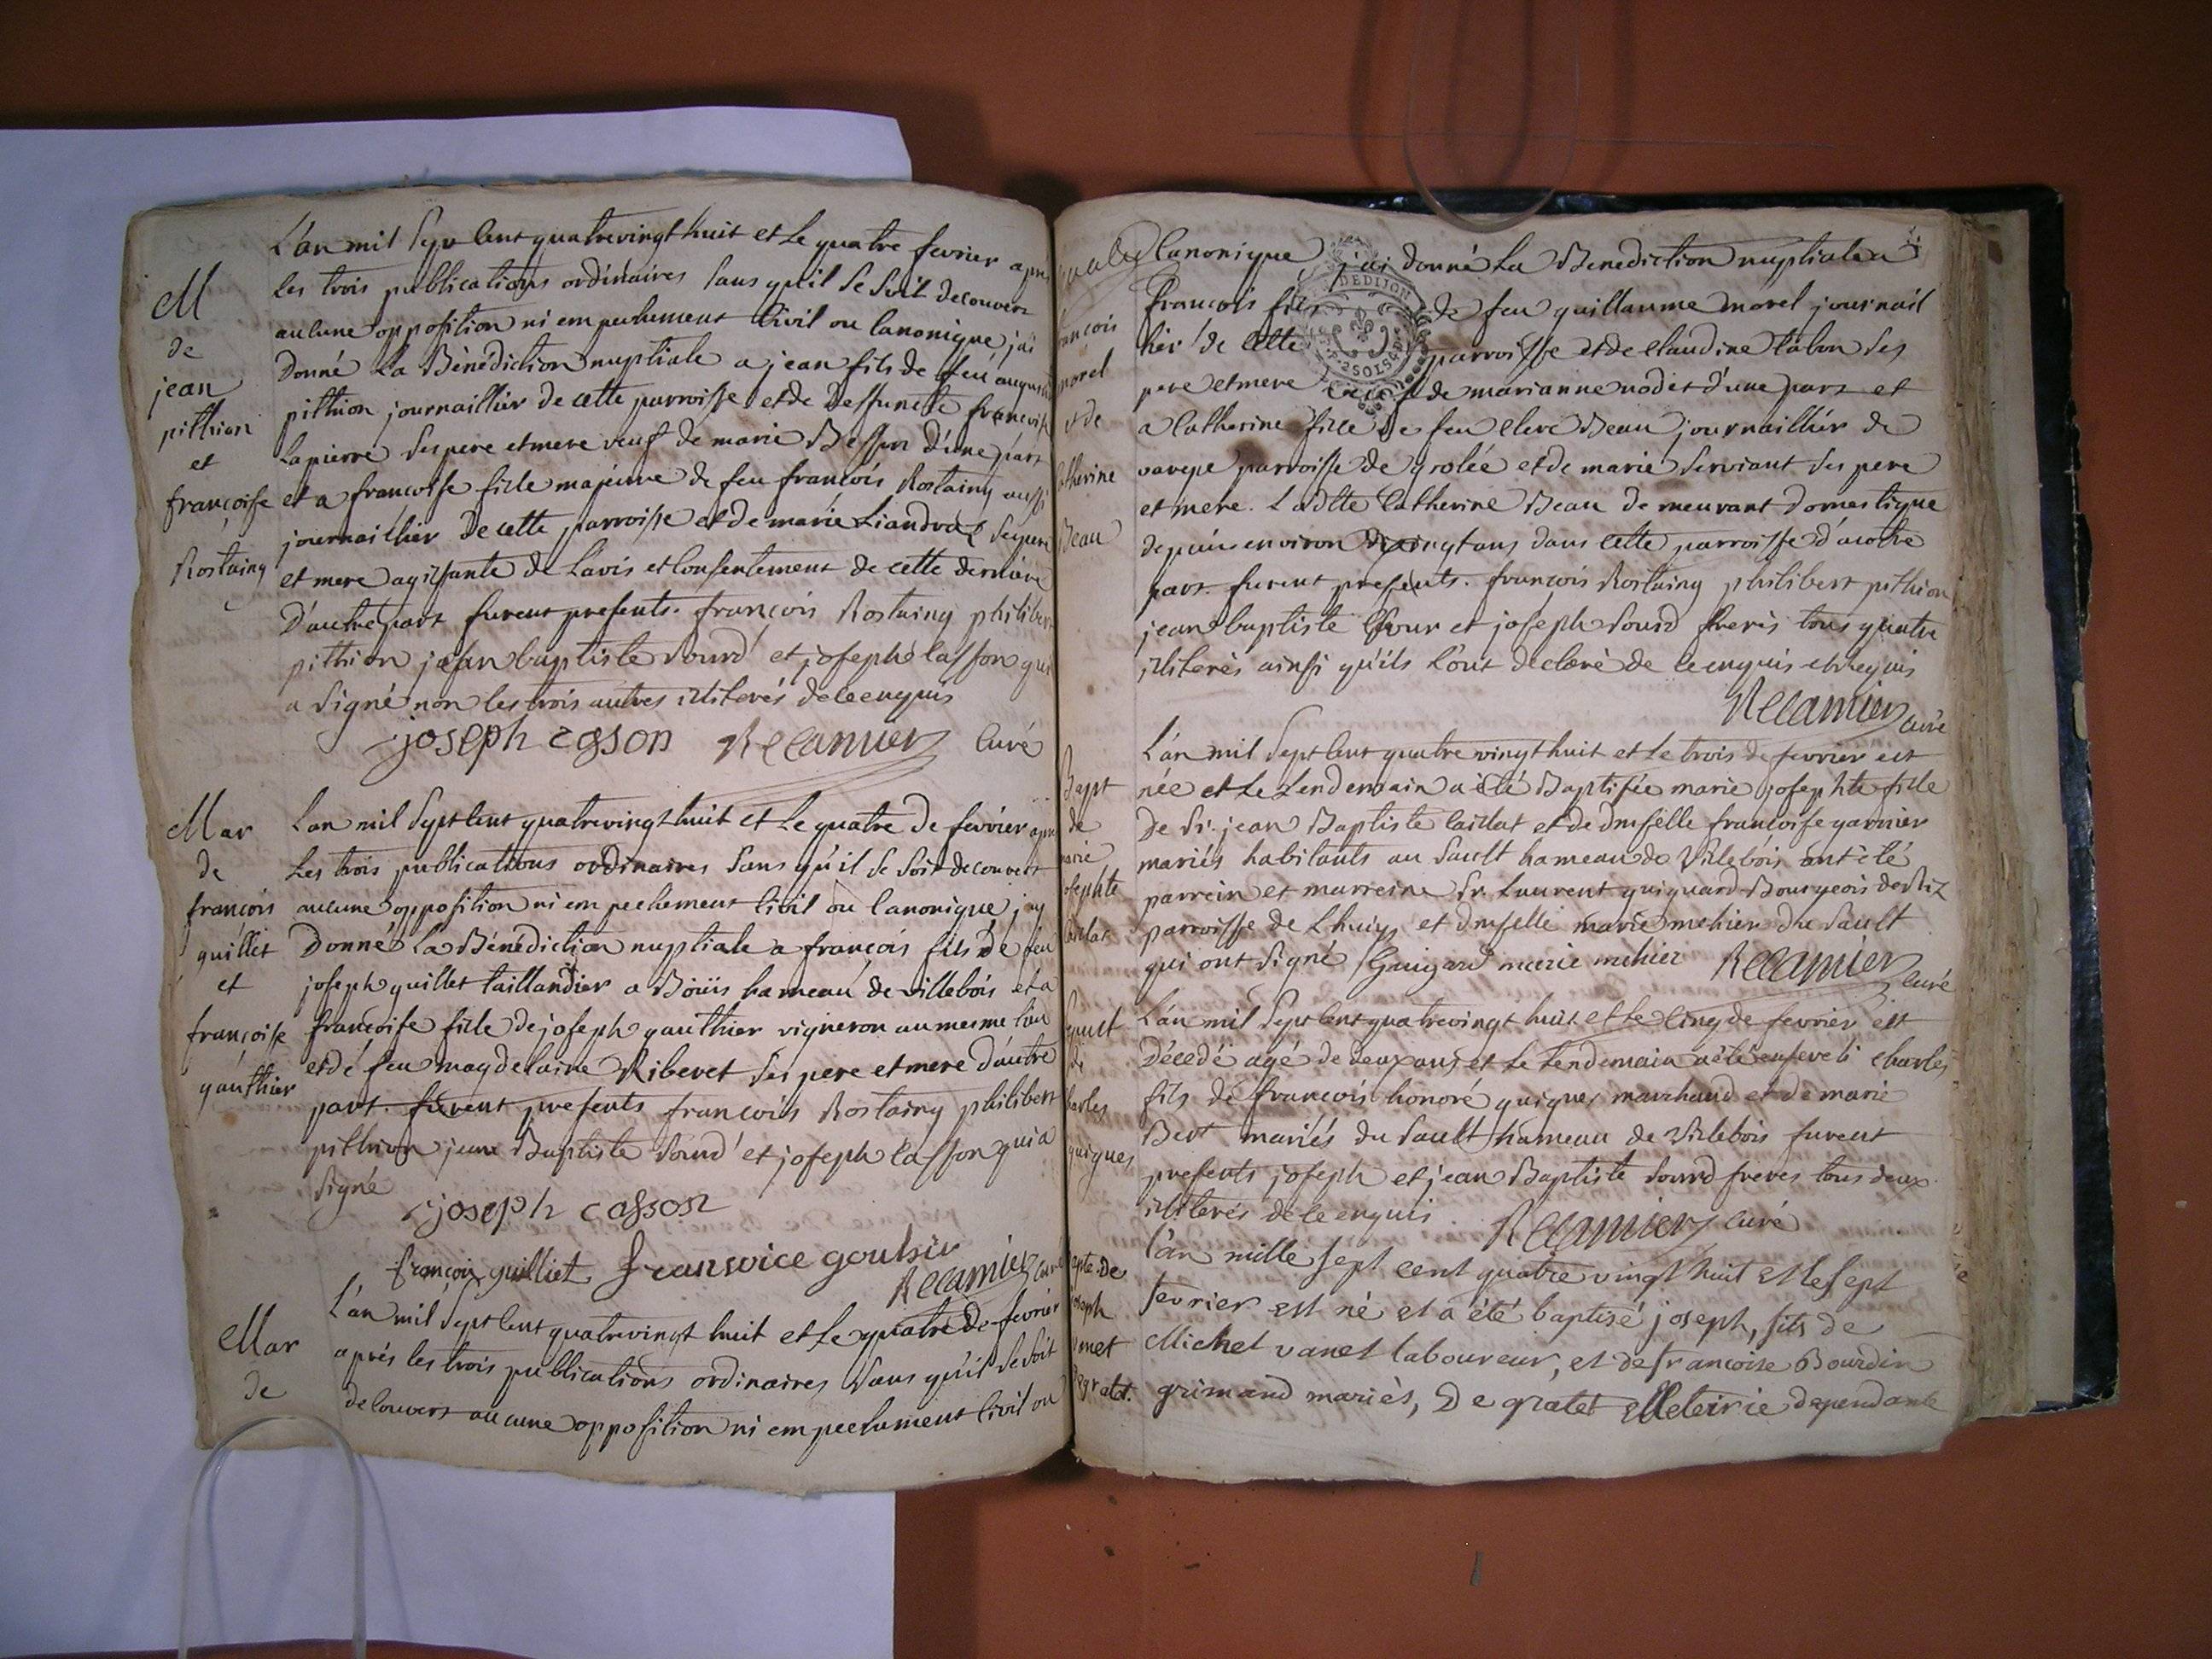 L'an mil Sept Cent quatrevingt huit et Le quatre fevrier apres
Les trois publications ordinaires Sans qu'il Se Soit decouvert
aucune opposition ni empechement Civil ou Canonique j'ai
Donné La Bénédiction nuptiale a jean fils de feu
pithion journaillier de cette parroisse et de Deffuncte francoise
Lapierre Ses pere et mere veuf de marie Besson D'une part
et a francoise fille majeure de feu francois Rostaing aussi
journaillier De cette parroisse et de marie Liandraz Ses pere
et mere agissante de L'avis et Consentement de cette derniere
D'autre part furent presents. francois Rostaing philibert
pithion jean baptiste Sourd et joseph Casson qui
a Signé non les trois autres illiterés de ce enquis
joseph casson Recamier Curé
M
de
jean
pithion
et
françoise
Rostaing
L'an mil Sept Cent quatrevingt huit et Le quatre de fevrier apres
Les trois publications ordinaires Sans qu'il Se Soit decouvert
aucune opposition ni empechement Civil ou Canonique j'ay
Donné La Bénédiction nuptiale a françois fils de feu
joseph quillet taillandier a Boüis hameau de villebois et a
francoise fille de joseph gauthier vigneron au mesme lieu
et de feu magdelaine Riberet Ses pere et mere d'autre
part. furent presents francois Rostaing philibert
pithion jean Baptiste Sourd et joseph Casson qui a
Signé
joseph casson
françois quilliet franwice goutsir
Recamier Curé
Mar
de
francois
quillet
et
françoise
gauthier
L'an mil Sept Cent quatrevingt huit et Le quatre De fevrier
après les trois publications ordinaires Sans qu'il Se Soit
decouvert aucune opposition ni empechement Civil ou
Mar
de
Canonique j'ai donné La Benediction nuptiale a
francois fils de feu guillaume morel journail
lier de Cette parroisse et de Claudine Cabon Ses
pere et mere veuf de marianne nodet d'une part et
a Catherine fille de feu Clere Beau journaillier de
varepe parroisse de grolée et de marie Serviant Ses pere
et mere. Ladtte Catherine Beau demeurant Domestique
depuis environ vingt ans dans Cette parroisse d'autre
part. furent presents. francois Rostaing philibert pithion
jean baptiste et joseph Sourd freres tous quatre
illiterés ainsi qu'ils L'ont declaré de ce enquis et requis
Recamier Curé
françois
morel
et de
Catherine
Beau
L'an mil Sept Cent quatre vingt huit et Le trois de fevrier est
née et Le Lendemain a été Baptisée marie josephte fille
De Sr. jean Baptiste Caillat et de dmselle francoise garnier
mariés habitants au Sault hameau de Villebois ont été
parrein et marreine Sr. Laurent guiguard Bourgeois de Rix
parroisse de Lhuis et dmselle marie mehier du Sault
qui ont Signé Guigard marie mehier Recamier Curé
Bapt
de
marie
josephte
Caillat
L'an mil Sept Cent quatrevingt huit et le Cinq de fevrier est
Décedé agé de deux ans et Le Lendemain a été enseveli Charles
fils de françois honoré guigues marchand et de marie
Bert mariés du Sault hameau de Villebois furent
presents joseph et jean Baptiste Sourd freres tous deux
illiterés de ce enquis. Recamier Curé
Sepult
de
Charles
guigues
l'an mille sept cent quatre vingt huit et le sept
fevrier est né et a été baptisé joseph, fils de
Michel vanet laboureur, et de francoise Bourdin
grimand mariés, De gratet Meteirie dependante
Bapte. De
joseph
vanet
De gratet.
DEDIJON